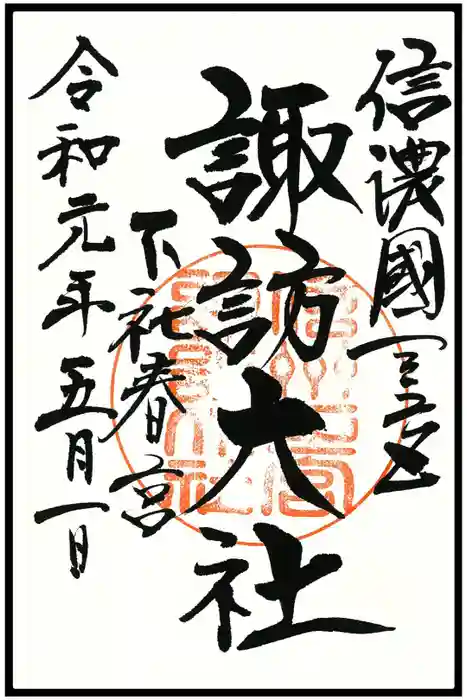 信濃國一之宮
諏訪大社
下社春宮
令和元年五月一日